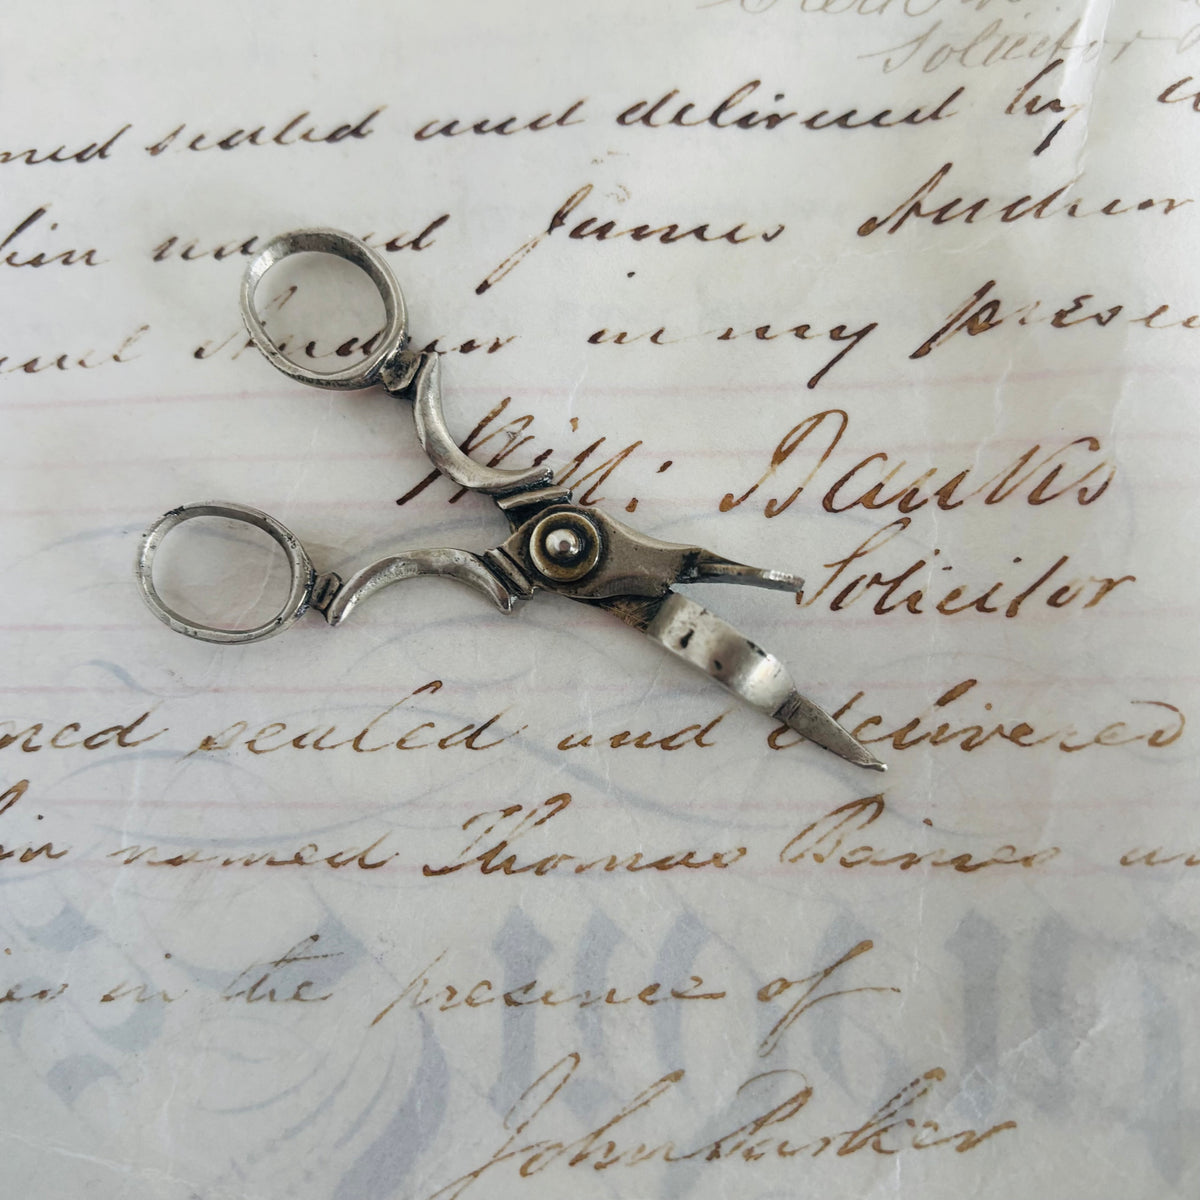 Solicitor
ned sealed and delivered by
hin named James Andrew
Andrew in my prese
Will: Banks
Solicitor
ned sealed and delivered
hin named Thomas Baines
in the presence of
John Parker